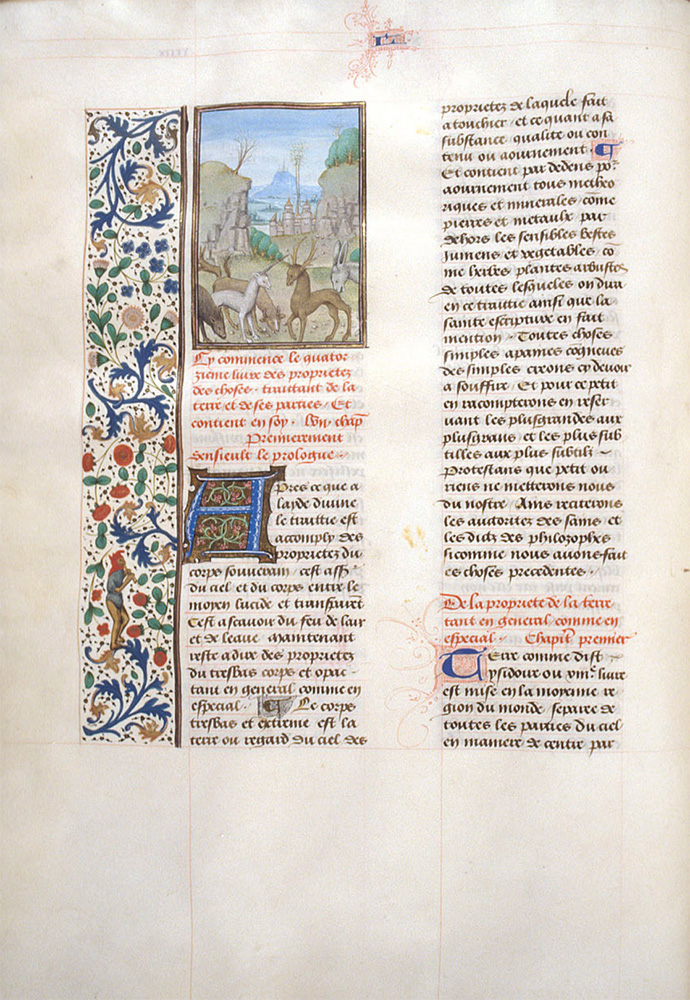 Cy commence le quator
zieme livre des proprietez
des choses traittant de la
terre et de ses parties Et
contient en soy . lvii . chap
Premierement
sensieult le prologue
Apres ce que a
layde divine
le traittie est
accomply des
proprietez du
corps souverain cest ass
du ciel et du corps entre le
moyen lucide et transparet
Cest ascavoir du feu de lair
et de leaue maintenant
reste a dire des proprietez
du tresbas corps et opac
tant en general comme en
especial . Le corps
tresbas et extreme est la
terre ou regard du ciel des
proprietez de laquele fait
a touchier et ce quant a sa
substance qualite ou con
tenu ou aournement .
Et contient par dedens po
aournement tous metheo
riques et minerales come
pierres et metaulx par
dehors les sensibles bestes
jumens et vegetables co
me herbes plantes arbustes
de toutes lesqueles on dira
en ce traittie ainsi que la
sainte escripture en fait
mention Toutes choses
simples apames cogneues
des simples cy devoir
a souffire Et pour ce petit
en racompterons en reser
vant les plus grandes aux
plus grans et les plus sub
tilles aux plus subtilz
Protestans que petit ou
riens ne metterons nous
du nostre Ains reciterons
les auctoritez des sains et
les dictz des philozophes
si comme nous avons fait
es choses precedentes .
De la propriete de la terre
tant en general comme en
especial Chapitre premier
Terre comme dist
ysidoire ou livre
est mise en la moyenne re
gion du monde separee de
toutes les parties du ciel
en maniere de centre par